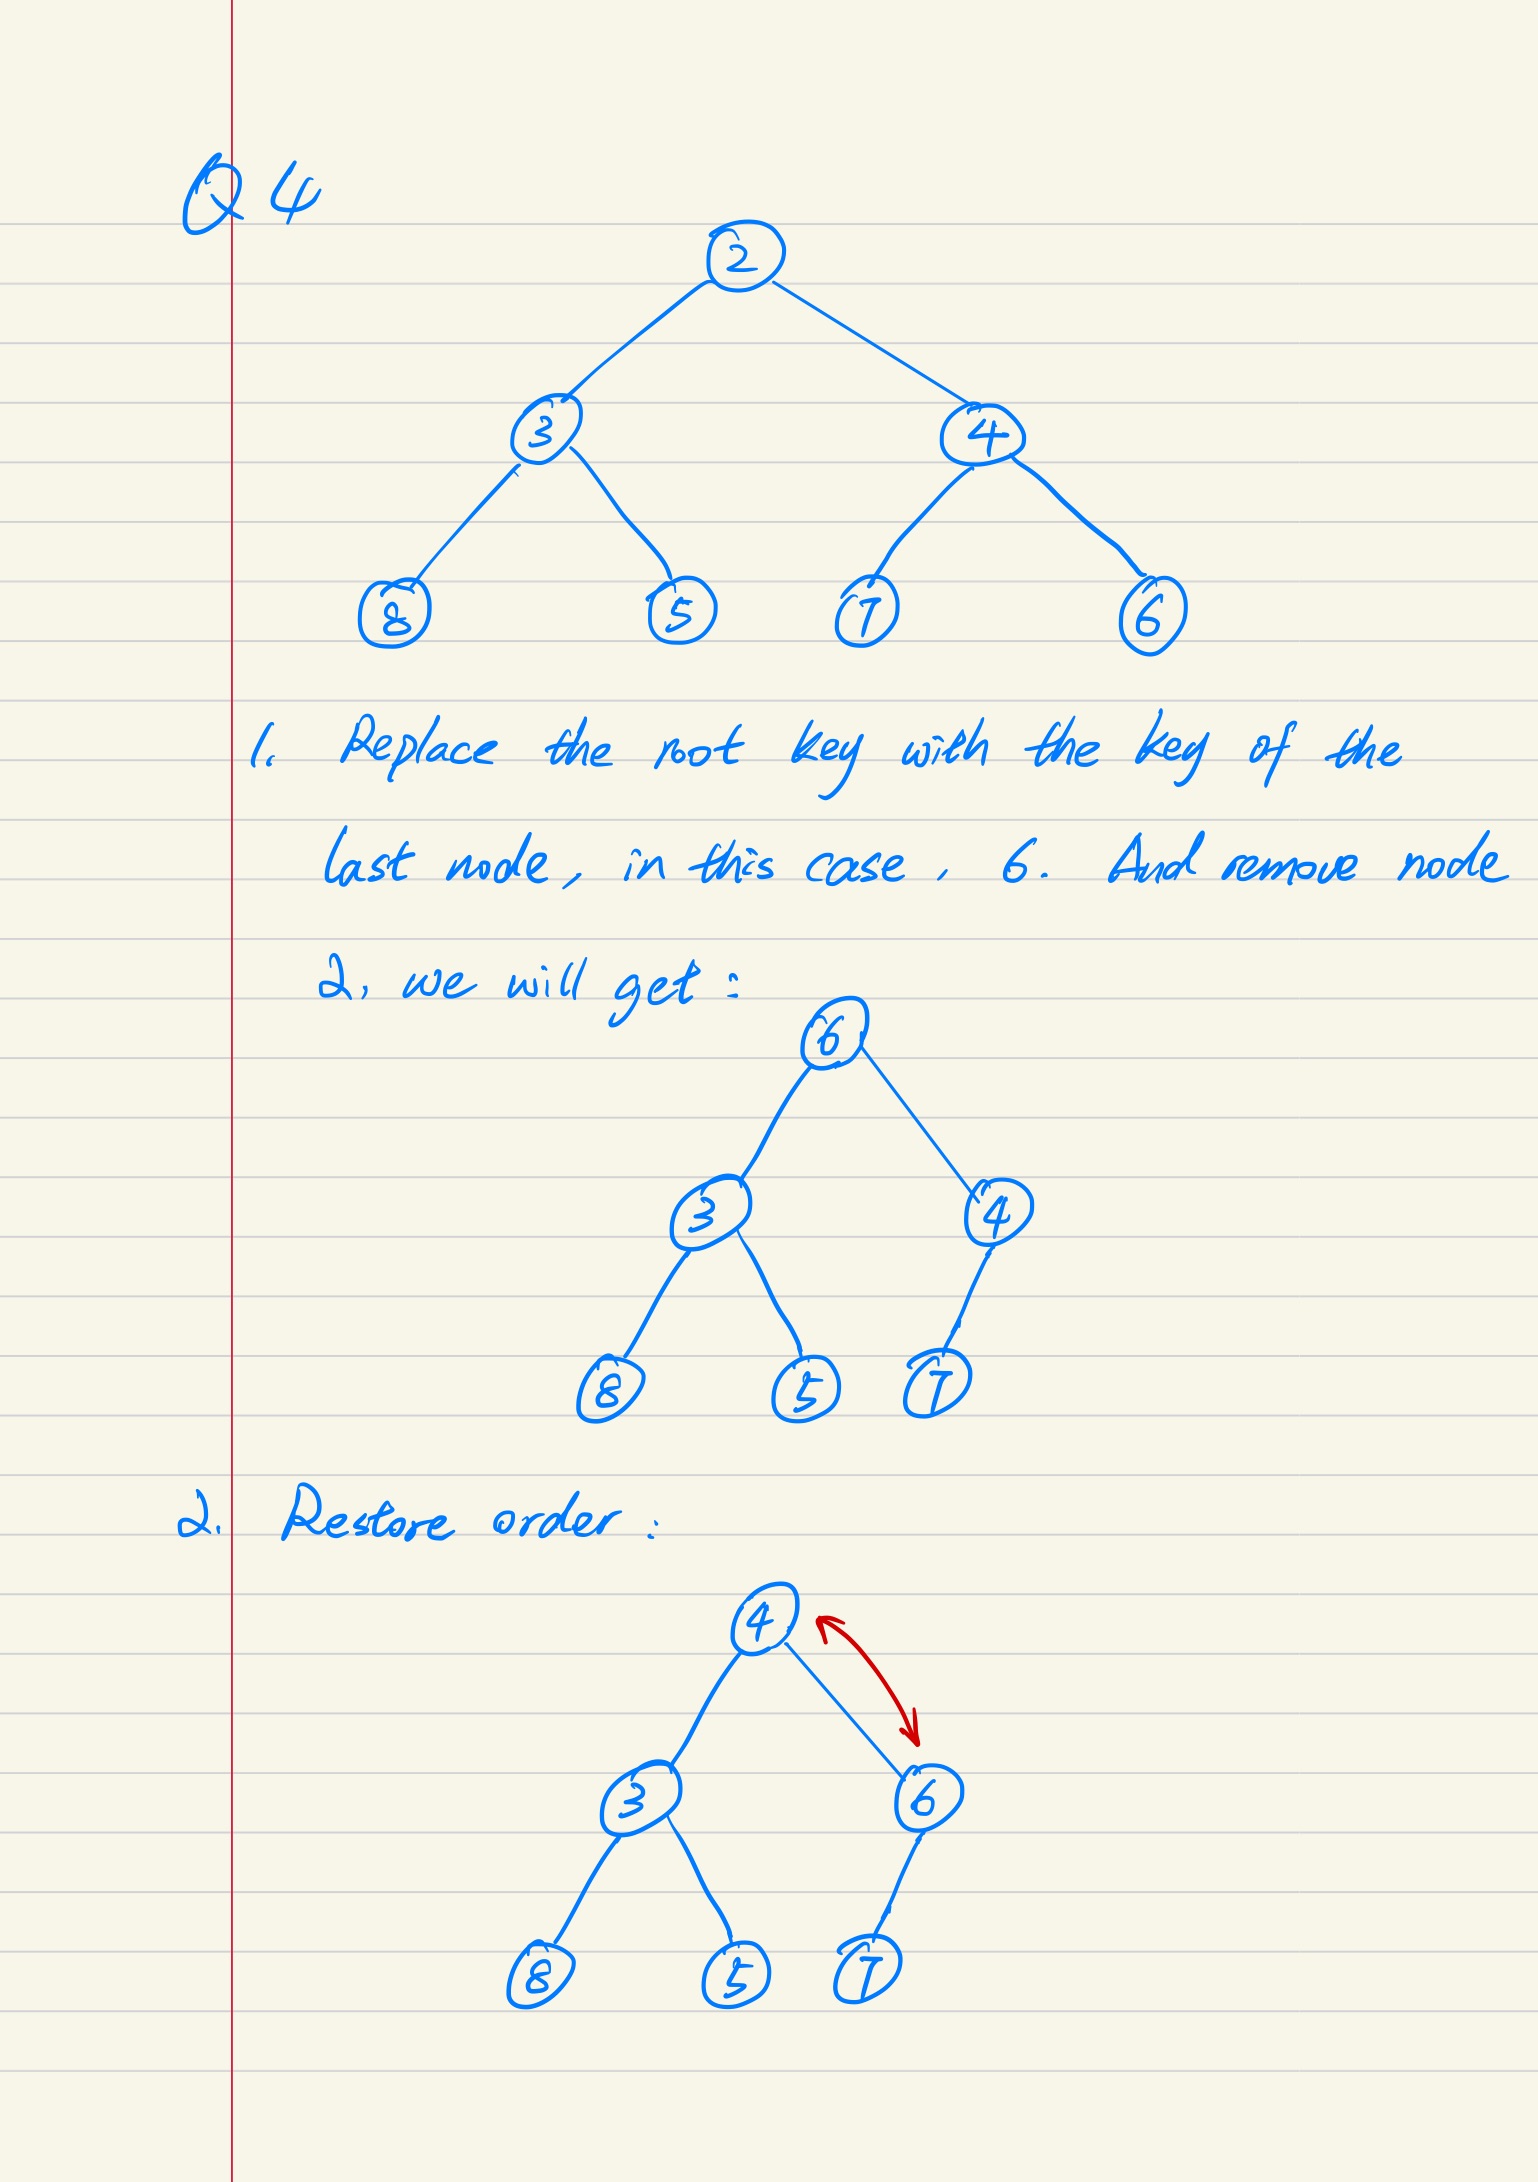 Q4
2
3 4
8 5 7 6
1. Replace the root key with the key of the
last node, in this case, 6. And remove node
2, we will get:
6
3 4
8 5 7
2. Restore order:
4
3 6
8 5 7